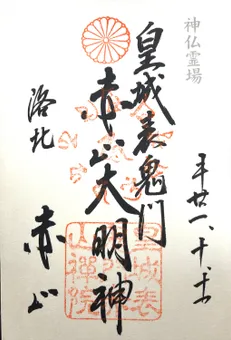 神仏霊場
平廿一、十、十
皇城表鬼門
赤山大明神
洛北
赤山
皇城表
山禅院